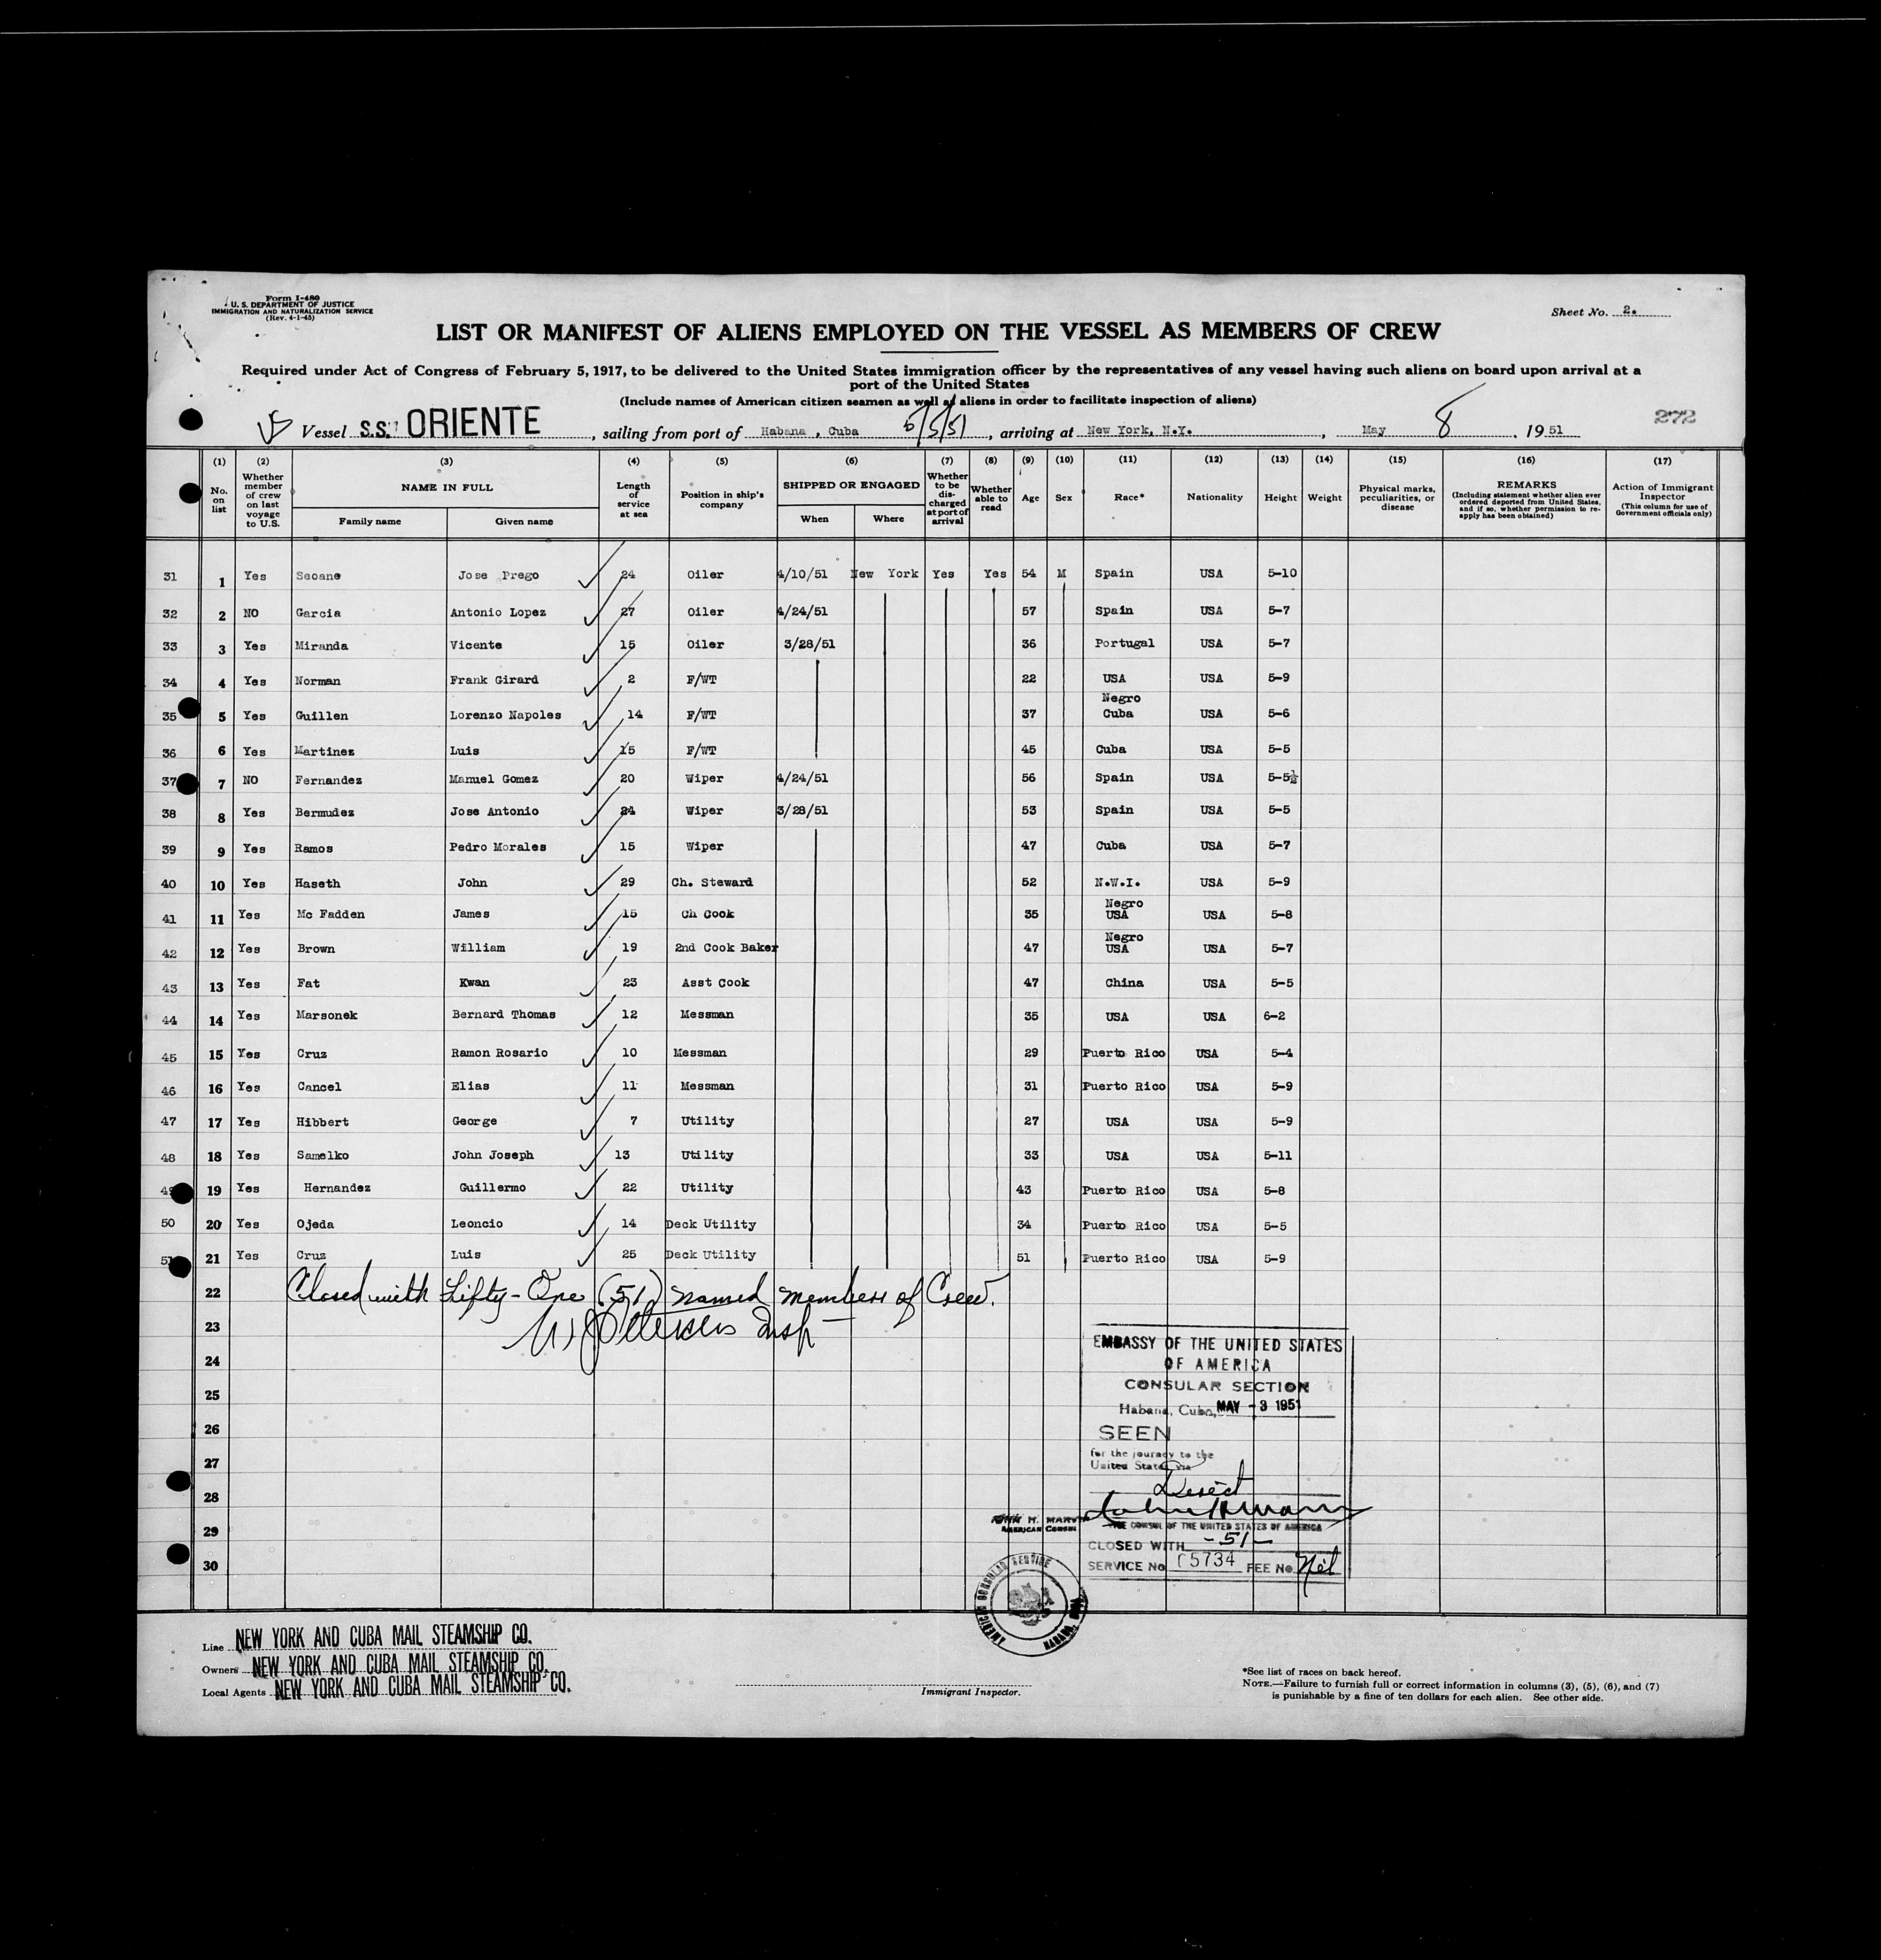 Form I-480
U. S. DEPARTMENT OF JUSTICE
IMMIGRATION AND NATURALIZATION SERVICE
(Rev. 4-1-45)
Sheet No. 2.
LIST OR MANIFEST OF ALIENS EMPLOYED ON THE VESSEL AS MEMBERS OF CREW
Required under Act of Congress of February 5, 1917, to be delivered to the United States immigration officer by the representatives of any vessel having such aliens on board upon arrival at a
port of the United States
(Include names of American citizen seamen as well as aliens in order to facilitate inspection of aliens)
Vessel S.S. ORIENTE, sailing from port of Habana, Cuba 5/5/51, arriving at New York, N.Y., May 8, 1951
272
(1) (2) (3) (4) (5) (6) (7) (8) (9) (10) (11) (12) (13) (14) (15) (16) (17)
No. on list
Whether member of crew on last voyage to U.S.
NAME IN FULL
Family name Given name
Length of service at sea
Position in ship's company
SHIPPED OR ENGAGED
When Where
Whether to be discharged at port of arrival
Whether able to read
Age
Sex
Race*
Nationality
Height
Weight
Physical marks, peculiarities, or disease
REMARKS
(Including statement whether alien ever ordered deported from United States, and if so, whether permission to re-apply has been obtained)
Action of Immigrant Inspector
(This column for use of Government officials only)
31 1 Yes Seoane Jose Prego 24 Oiler 4/10/51 New York Yes Yes 54 M Spain USA 5-10
32 2 NO Garcia Antonio Lopez 27 Oiler 4/24/51 57 Spain USA 5-7
33 3 Yes Miranda Vicente 15 Oiler 3/28/51 36 Portugal USA 5-7
34 4 Yes Norman Frank Girard 2 F/WT 22 USA USA 5-9
35 5 Yes Guillen Lorenzo Napoles 14 F/WT 37 Negro Cuba USA 5-6
36 6 Yes Martinez Luis 15 F/WT 45 Cuba USA 5-5
37 7 NO Fernandez Manuel Gomez 20 Wiper 4/24/51 56 Spain USA 5-5½
38 8 Yes Bermudez Jose Antonio 24 Wiper 3/28/51 53 Spain USA 5-5
39 9 Yes Ramos Pedro Morales 15 Wiper 47 Cuba USA 5-7
40 10 Yes Haseth John 29 Ch. Steward 52 N.W.I. USA 5-9
41 11 Yes Mc Fadden James 15 Ch Cook 35 Negro USA USA 5-8
42 12 Yes Brown William 19 2nd Cook Baker 47 Negro USA USA 5-7
43 13 Yes Fat Kwan 23 Asst Cook 47 China USA 5-5
44 14 Yes Marsonek Bernard Thomas 12 Messman 35 USA USA 6-2
45 15 Yes Cruz Ramon Rosario 10 Messman 29 Puerto Rico USA 5-4
46 16 Yes Cancel Elias 11 Messman 31 Puerto Rico USA 5-9
47 17 Yes Hibbert George 7 Utility 27 USA USA 5-9
48 18 Yes Samelko John Joseph 13 Utility 33 USA USA 5-11
49 19 Yes Hernandez Guillermo 22 Utility 43 Puerto Rico USA 5-8
50 20 Yes Ojeda Leoncio 14 Deck Utility 34 Puerto Rico USA 5-5
51 21 Yes Cruz Luis 25 Deck Utility 51 Puerto Rico USA 5-9
22 Closed with Fifty-One (51) named members of Crew.
23
24
25
26
27
28
29
30
EMBASSY OF THE UNITED STATES
OF AMERICA
CONSULAR SECTION
Habana, Cuba, MAY - 3 1951
SEEN
for the journey to the
United States via
Direct
JOHN H. MARVIN
AMERICAN CONSUL
VICE CONSUL OF THE UNITED STATES OF AMERICA
CLOSED WITH -51-
SERVICE No 5734 FEE No Nil
AMERICAN CONSULAR SERVICE
Line NEW YORK AND CUBA MAIL STEAMSHIP CO.
Owners NEW YORK AND CUBA MAIL STEAMSHIP CO.
Local Agents NEW YORK AND CUBA MAIL STEAMSHIP CO.
Immigrant Inspector.
*See list of races on back hereof.
NOTE.—Failure to furnish full or correct information in columns (3), (5), (6), and (7)
is punishable by a fine of ten dollars for each alien. See other side.